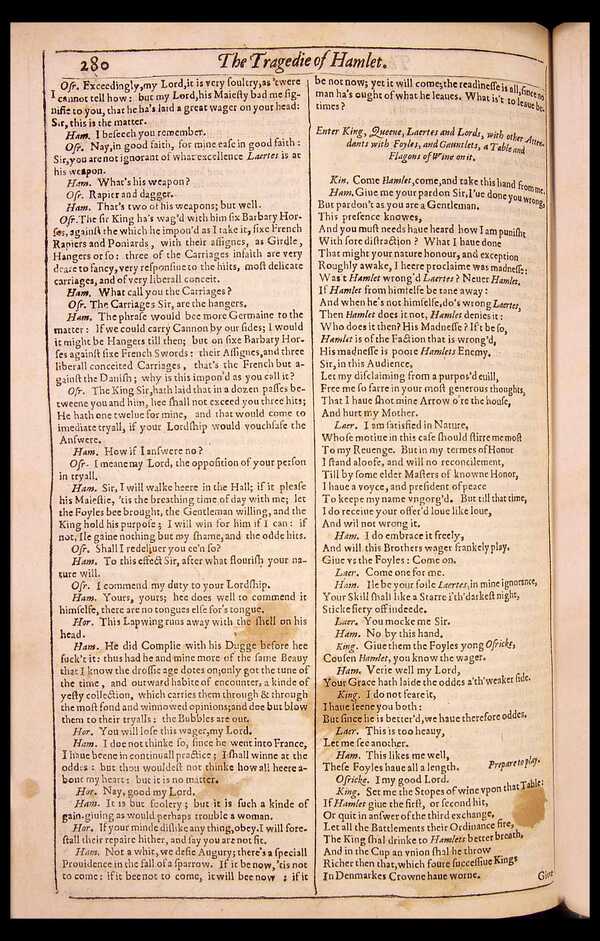 280
The Tragedie of Hamlet.
Osr. Exceedingly, my Lord, it is very soultry, as 'twere
I cannot tell how: but my Lord, his Maiesty bad me sig-
nifie to you, that he ha's laid a great wager on your head:
Sir, this is the matter.
Ham. I beseech you remember.
Osr. Nay, in good faith, for mine ease in good faith:
Sir, you are not ignorant of what excellence Laertes is at
his weapon.
Ham. What's his weapon?
Osr. Rapier and dagger.
Ham. That's two of his weapons; but well.
Osr. The sir King ha's wag'd with him six Barbary Hor-
ses, against the which he impon'd as I take it, sixe French
Rapiers and Poniards, with their assignes, as Girdle,
Hangers or so: three of the Carriages infaith are very
deare to fancy, very responsiue to the hilts, most delicate
carriages, and of very liberall conceit.
Ham. What call you the Carriages?
Osr. The Carriages Sir, are the hangers.
Ham. The phrase would bee more Germaine to the
matter: If we could carry Cannon by our sides; I would
it might be Hangers till then; but on sixe Barbary Hor-
ses against sixe French Swords: their Assignes, and three
liberall conceited Carriages, that's the French but a-
gainst the Danish; why is this impon'd as you call it?
Osr. The King Sir, hath laid that in a dozen passes be-
tweene you and him, hee shall not exceed you three hits;
He hath one twelue for mine, and that would come to
imediate tryall, if your Lordship would vouchsafe the
Answere.
Ham. How if I answere no?
Osr. I meane my Lord, the opposition of your person
in tryall.
Ham. Sir, I will walke heere in the Hall; if it please
his Maiestie, 'tis the breathing time of day with me; let
the Foyles bee brought, the Gentleman willing, and the
King hold his purpose; I will win for him if I can: if
not, Ile gaine nothing but my shame, and the odde hits.
Osr. Shall I redeliuer you ee'n so?
Ham. To this effect Sir, after what flourish your na-
ture will.
Osr. I commend my duty to your Lordship.
Ham. Yours, yours; hee does well to commend it
himselfe, there are no tongues else for's tongue.
Hor. This Lapwing runs away with the shell on his
head.
Ham. He did Complie with his Dugge before hee
suck't it: thus had he and mine more of the same Beauy
that I know the drossie age dotes on; only got the tune of
the time, and outward habite of encounter, a kinde of
yesty collection, which carries them through & through
the most fond and winnowed opinions; and doe but blow
them to their tryalls: the Bubbles are out.
Hor. You will lose this wager, my Lord.
Ham. I doe not thinke so, since he went into France,
I haue beene in continuall practice; I shall winne at the
oddes: but thou wouldest not thinke how all heere a-
bout my heart: but it is no matter.
Hor. Nay, good my Lord.
Ham. It is but foolery; but it is such a kinde of
gain-giuing as would perhaps trouble a woman.
Hor. If your minde dislike any thing, obey. I will fore-
stall their repaire hither, and say you are not fit.
Ham. Not a whit, we defie Augury; there's a speciall
Prouidence in the fall of a sparrow. If it be now, 'tis not
to come: if it bee not to come, it will bee now; if it
be not now; yet it will come; the readinesse is all, since no
man ha's ought of what he leaues. What is't to leaue be-
times?
Enter King, Queene, Laertes and Lords, with other Atten-
dants with Foyles, and Gauntlets, a Table and
Flagons of Wine on it.
Kin. Come Hamlet, come, and take this hand from me.
Ham. Giue me your pardon Sir, I'ue done you wrong,
But pardon't as you are a Gentleman.
This presence knowes,
And you must needs haue heard how I am punisht
With sore distraction? What I haue done
That might your nature honour, and exception
Roughly awake, I heere proclaime was madnesse:
Was't Hamlet wrong'd Laertes? Neuer Hamlet.
If Hamlet from himselfe be tane away:
And when he's not himselfe, do's wrong Laertes,
Then Hamlet does it not, Hamlet denies it:
Who does it then? His Madnesse? If't be so,
Hamlet is of the Faction that is wrong'd,
His madnesse is poore Hamlets Enemy.
Sir, in this Audience,
Let my disclaiming from a purpos'd euill,
Free me so farre in your most generous thoughts,
That I haue shot mine Arrow o're the house,
And hurt my Mother.
Laer. I am satisfied in Nature,
Whose motiue in this case should stirre me most
To my Reuenge. But in my termes of Honor
I stand aloofe, and will no reconcilement,
Till by some elder Masters of knowne Honor,
I haue a voyce, and president of peace
To keepe my name vngorg'd. But till that time,
I do receiue your offer'd loue like loue,
And wil not wrong it.
Ham. I do embrace it freely,
And will this Brothers wager frankely play.
Giue vs the Foyles: Come on.
Laer. Come one for me.
Ham. Ile be your foile Laertes, in mine ignorance,
Your Skill shall like a Starre i'th'darkest night,
Sticke fiery off indeede.
Laer. You mocke me Sir.
Ham. No by this hand.
King. Giue them the Foyles yong Osricke,
Cousen Hamlet, you know the wager.
Ham. Verie well my Lord,
Your Grace hath laide the oddes a'th'weaker side.
King. I do not feare it,
I haue seene you both:
But since he is better'd, we haue therefore oddes.
Laer. This is too heauy,
Let me see another.
Ham. This likes me well,
These Foyles haue all a length. Prepare to play.
Osricke. I my good Lord.
King. Set me the Stopes of wine vpon that Table:
If Hamlet giue the first, or second hit,
Or quit in answer of the third exchange,
Let all the Battlements their Ordinance fire,
The King shal drinke to Hamlets better breath,
And in the Cup an vnion shal he throw
Richer then that, which foure successiue Kings
In Denmarkes Crowne haue worne.
Giue